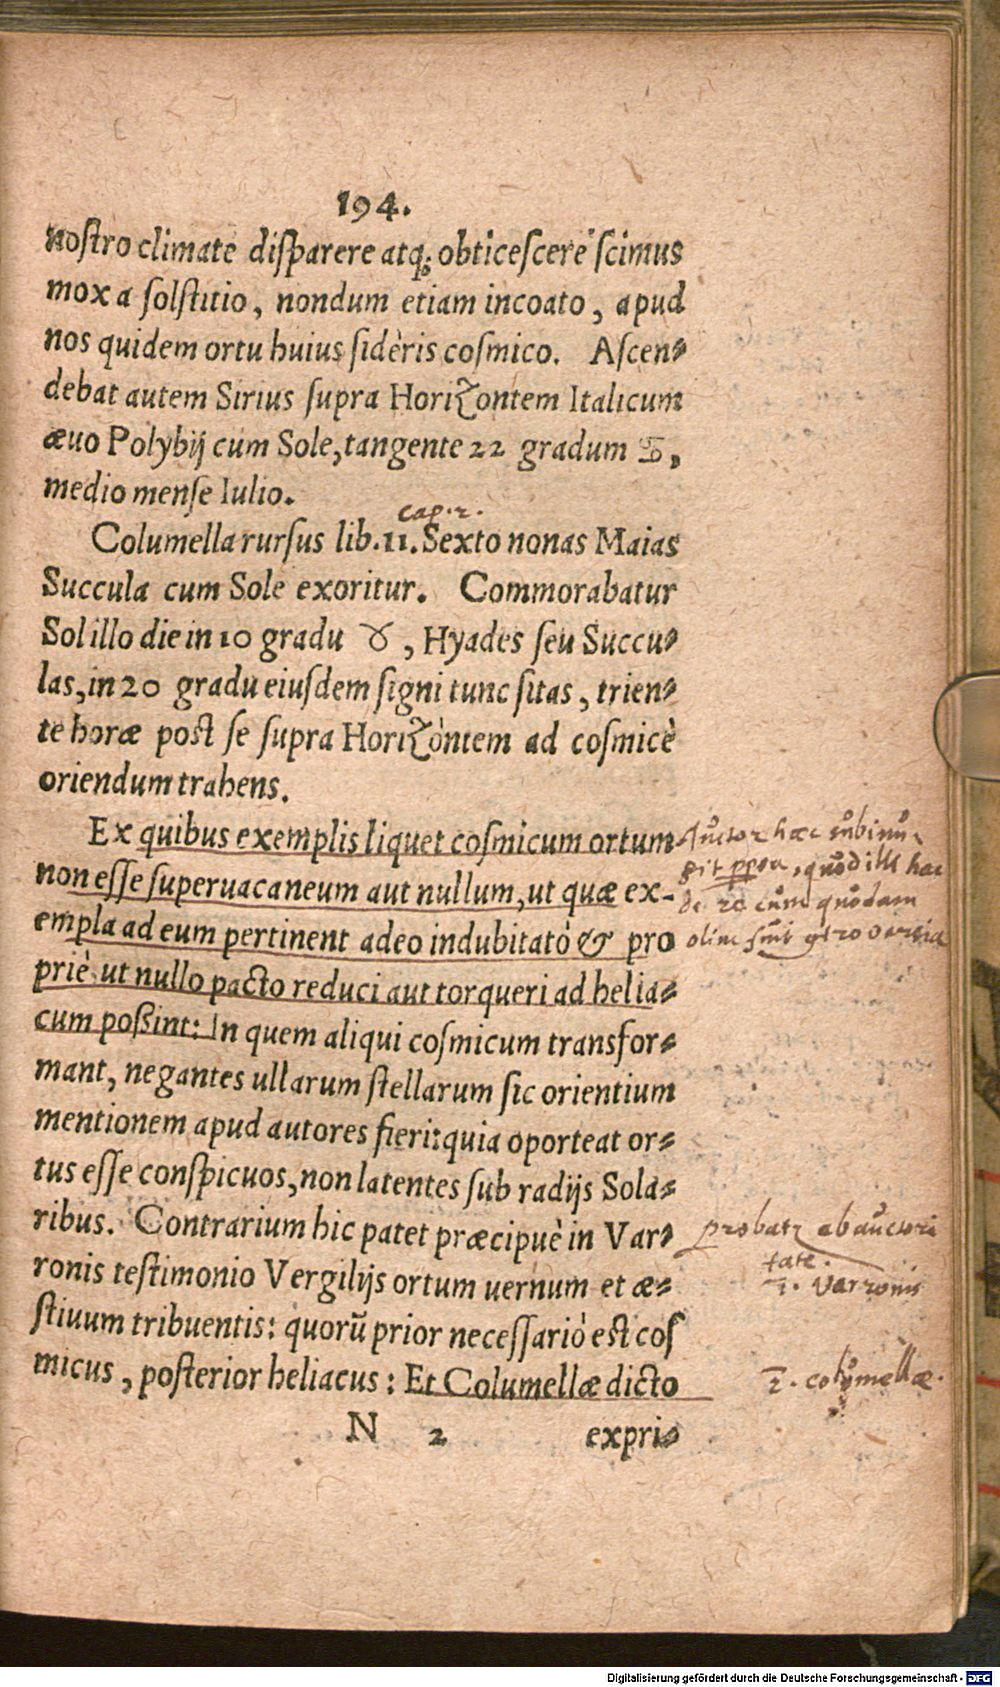 194.
nostro climate disparere atq; obticescere scimus
mox a solstitio, nondum etiam incoato, apud
nos quidem ortu huius sidèris cosmico. Ascen-
debat autem Sirius supra Horizontem Italicum
æuo Polybij cum Sole, tangente 22 gradum ♋,
medio mense Iulio.
cap. 2.
Columella rursus lib. 11. Sexto nonas Maias
Succula cum Sole exoritur. Commorabatur
Sol illo die in 10 gradu ♉, Hyades seu Succu-
las, in 20 gradu eiusdem signi tunc sitas, trien-
te horæ post se supra Horizòntem ad cosmicè
oriendum trahens.
Ex quibus exemplis liquet cosmicum ortum
non esse superuacaneum aut nullum, ut quæ ex-
empla ad eum pertinent adeo indubitatò & pro
priè ut nullo pacto reduci aut torqueri ad helia-
cum poßint: In quem aliqui cosmicum transfor-
mant, negantes ullarum stellarum sic orientium
mentionem apud autores fieri: quia oporteat or-
tus esse conspicuos, non latentes sub radijs Sola-
ribus. Contrarium hic patet præcipuè in Var-
ronis testimonio Vergilijs ortum uernum et æ-
stiuum tribuentis: quorũ prior necessariò est cos
micus, posterior heliacus: Et Columellæ dicto
N 2 expri-
Auctor hæc subinu-
quod illi hac
de re cum quodam
olim fuit
probatr ab auctori
tate.
1. Varronis
2. columellæ.
Digitalisierung gefördert durch die Deutsche Forschungsgemeinschaft - DFG